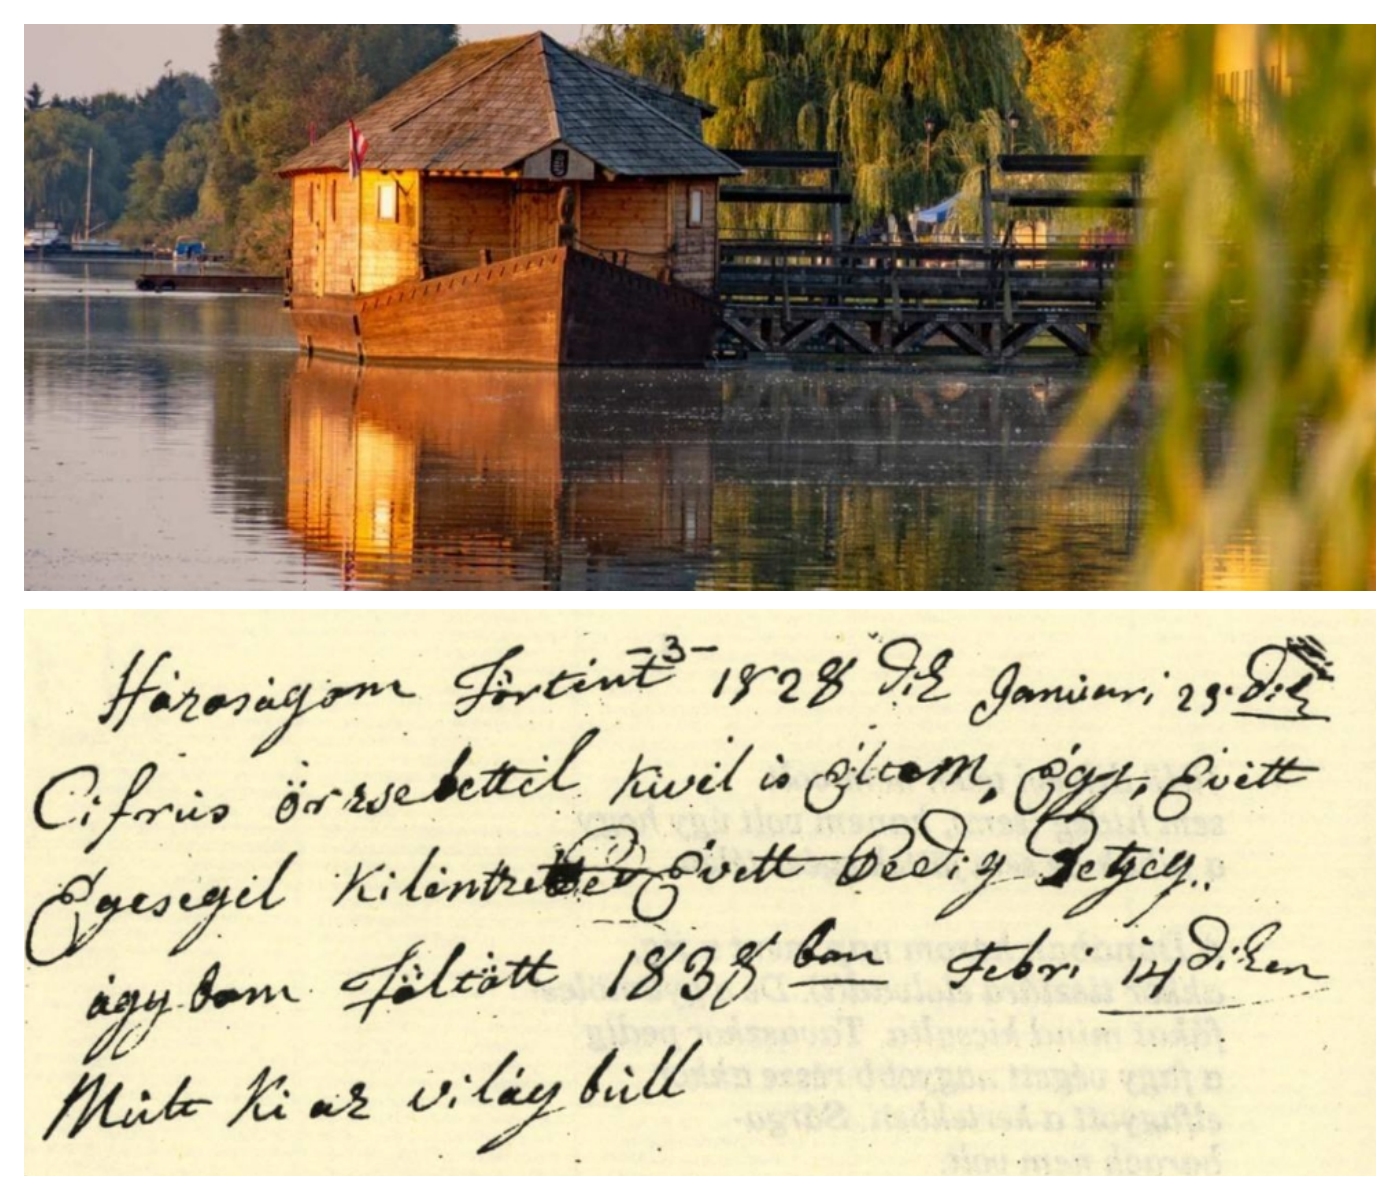 Házaságom Törtint -3- 1828 dik Januari 29. dik
Cifrus örzsebettel kivel is éltem, égy, Évitt
Egesegil kilentzed Évett Pedig Petzég..
ágy bam Töltött 1838 ban Febri 14 diken
Múlt ki az világ búll